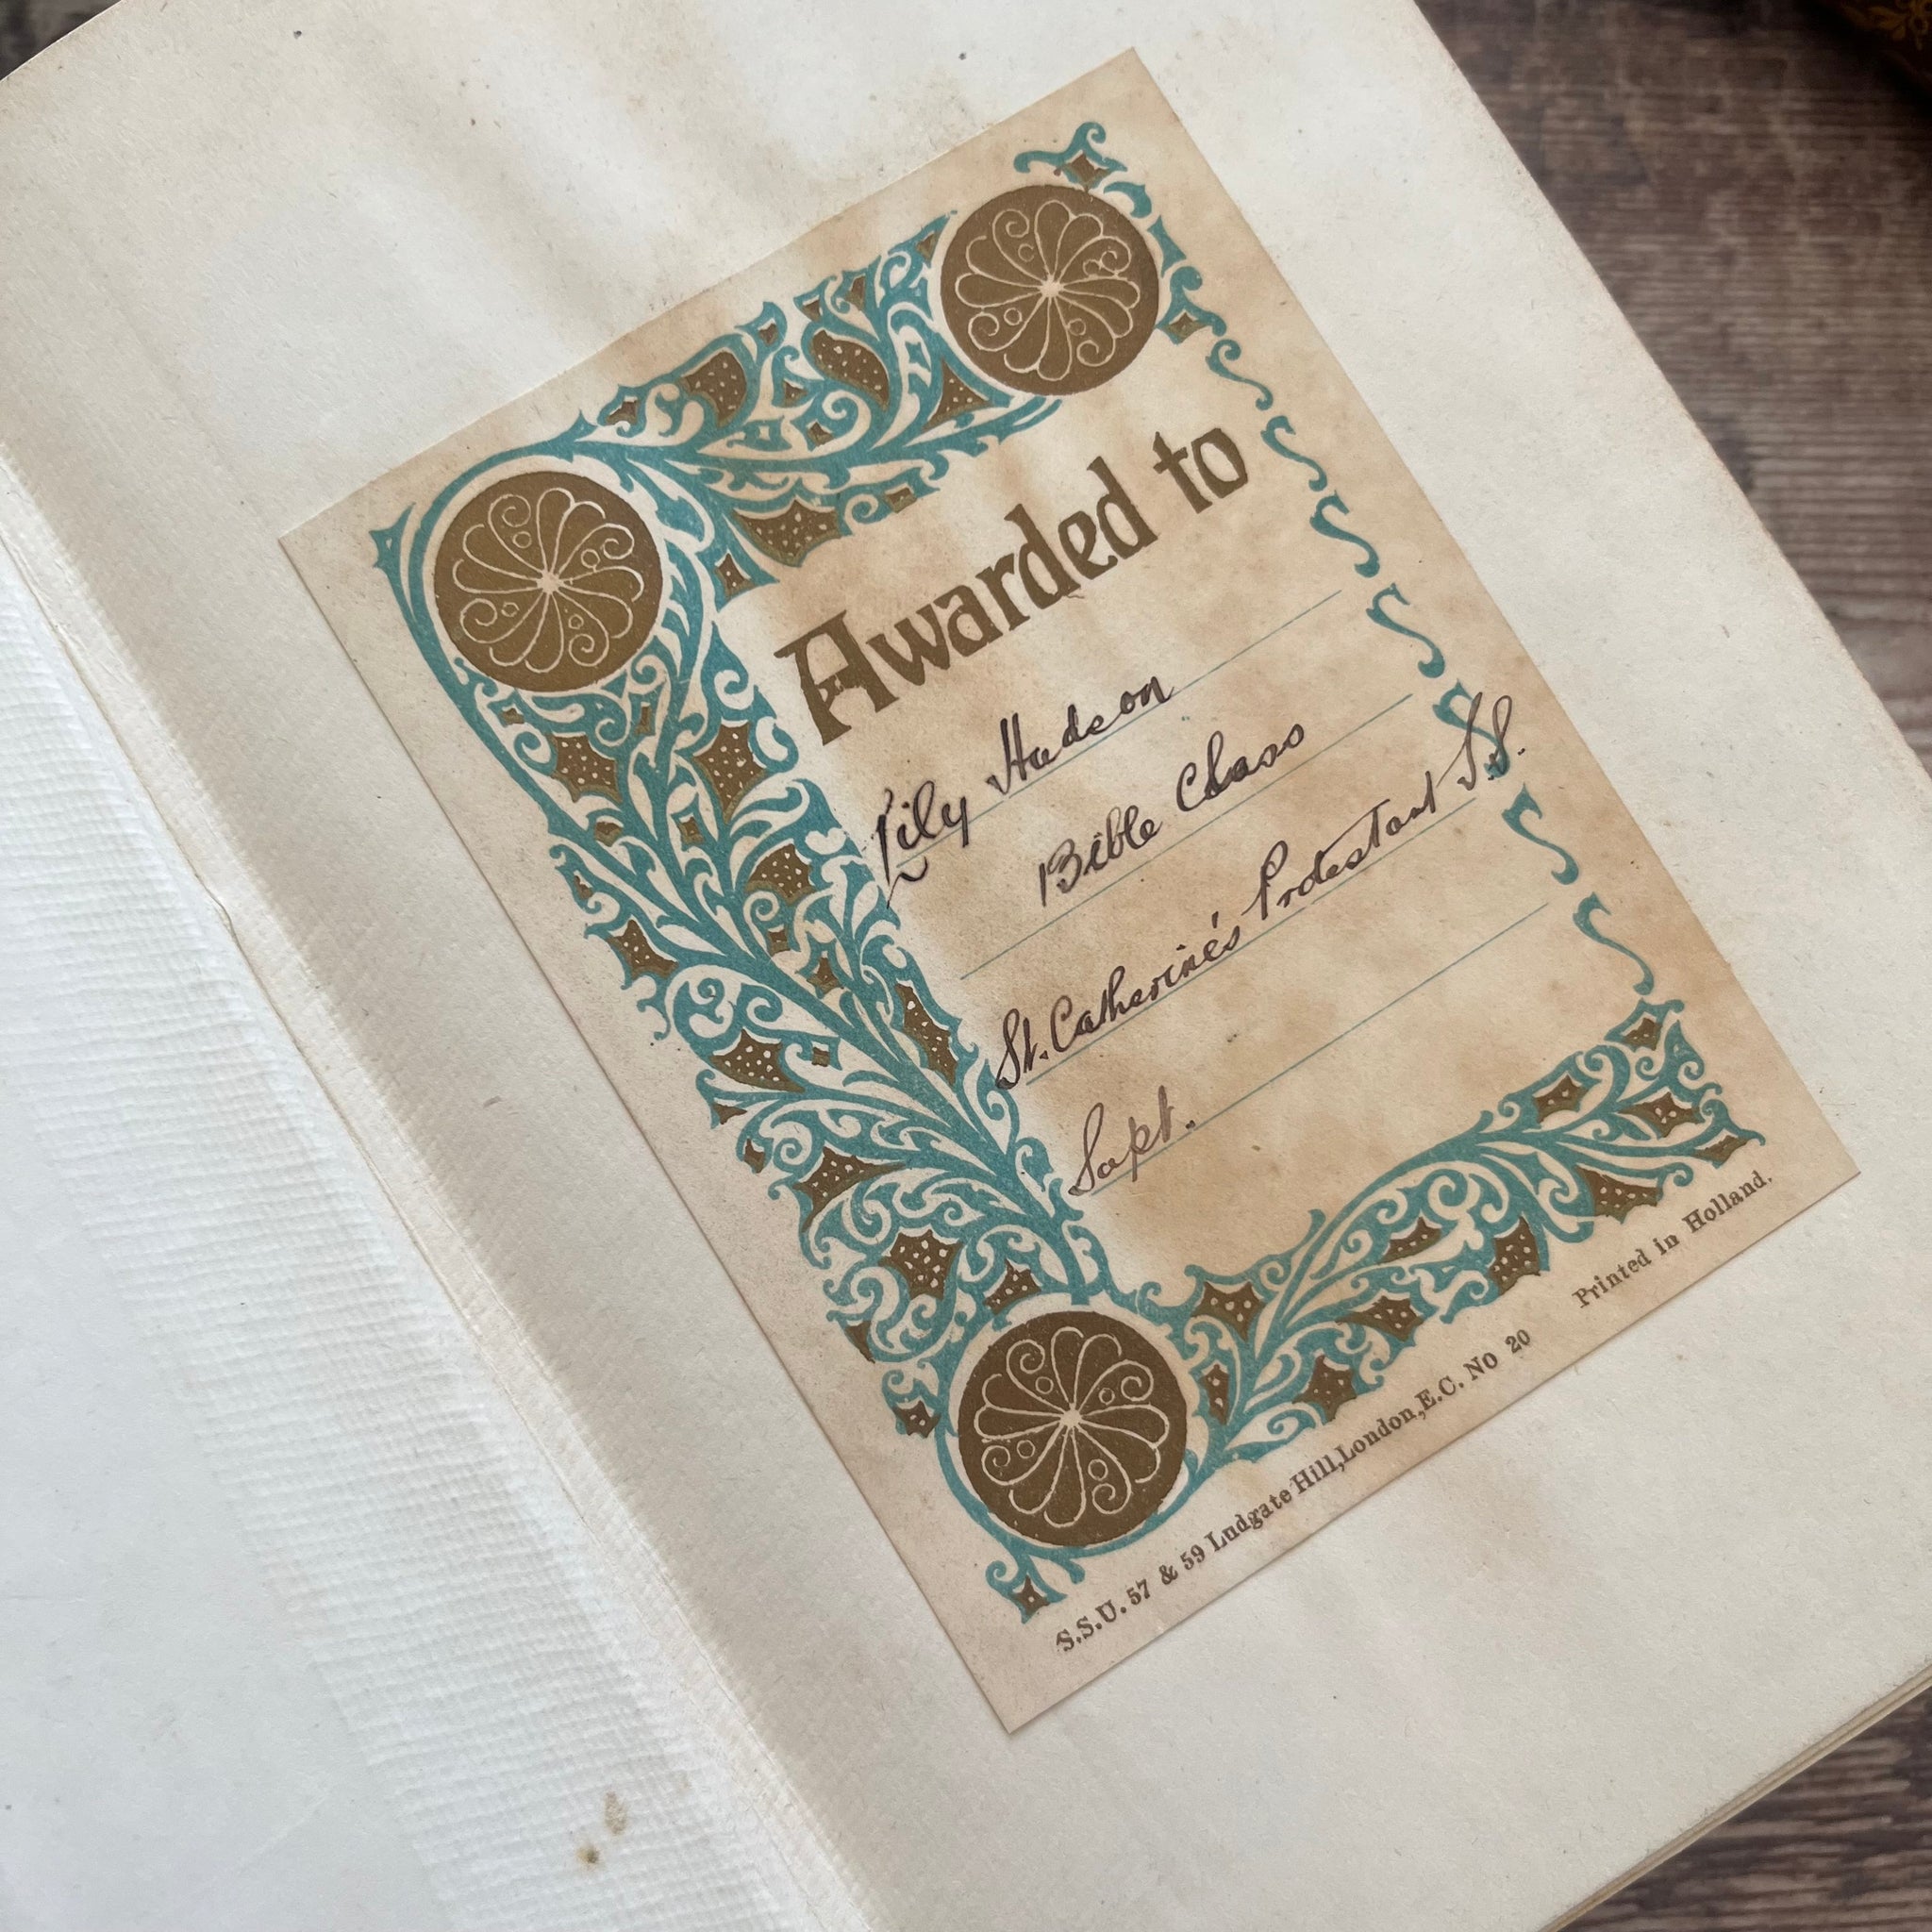 Awarded to
Lily Hudson
Bible Class
St. Catherine's Protestant S.S.
Sept.
Printed in Holland.
S.S.U. 57 & 59 Ludgate Hill, London, E.C. No 20